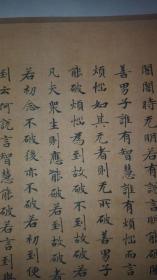 闇闇時无明若有說言明
善男子誰有智慧誰有煩惱而言
煩惱如其无者則无所破善男子
能破煩惱為到故破不到故破
凡夫衆生則應能破若到故破
若初念不破後亦不破若初到便
到云何說言智慧能破若言到與